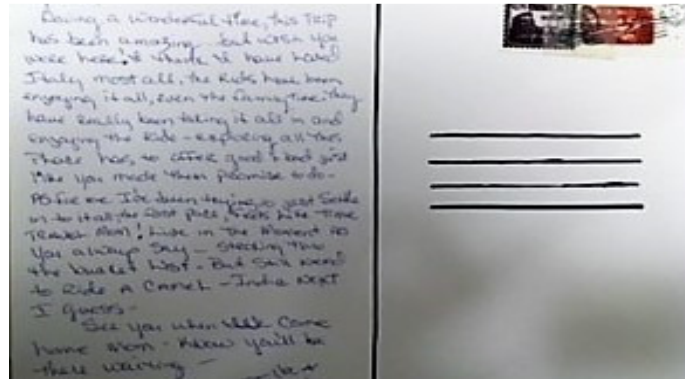 Having a wonderful time, this Trip
has been amazing - but wish you
were here! I think I have loved
Italy most all, the Kids have been
enjoying it all, even the family time. They
have really been taking it all in and
enjoying the Ride - exploring all this
Place has to offer good & bad just
like you made them promise to do -
As for me I've been trying to just Settle
in to it all, the fast pace, feels like Time
Travel Mom! Live in the Moment as
you always say -
the bucket list - But Still need
to Ride A Camel - India Next
I guess -
See you when we come
home Mom - Know you'll be
there waiting -